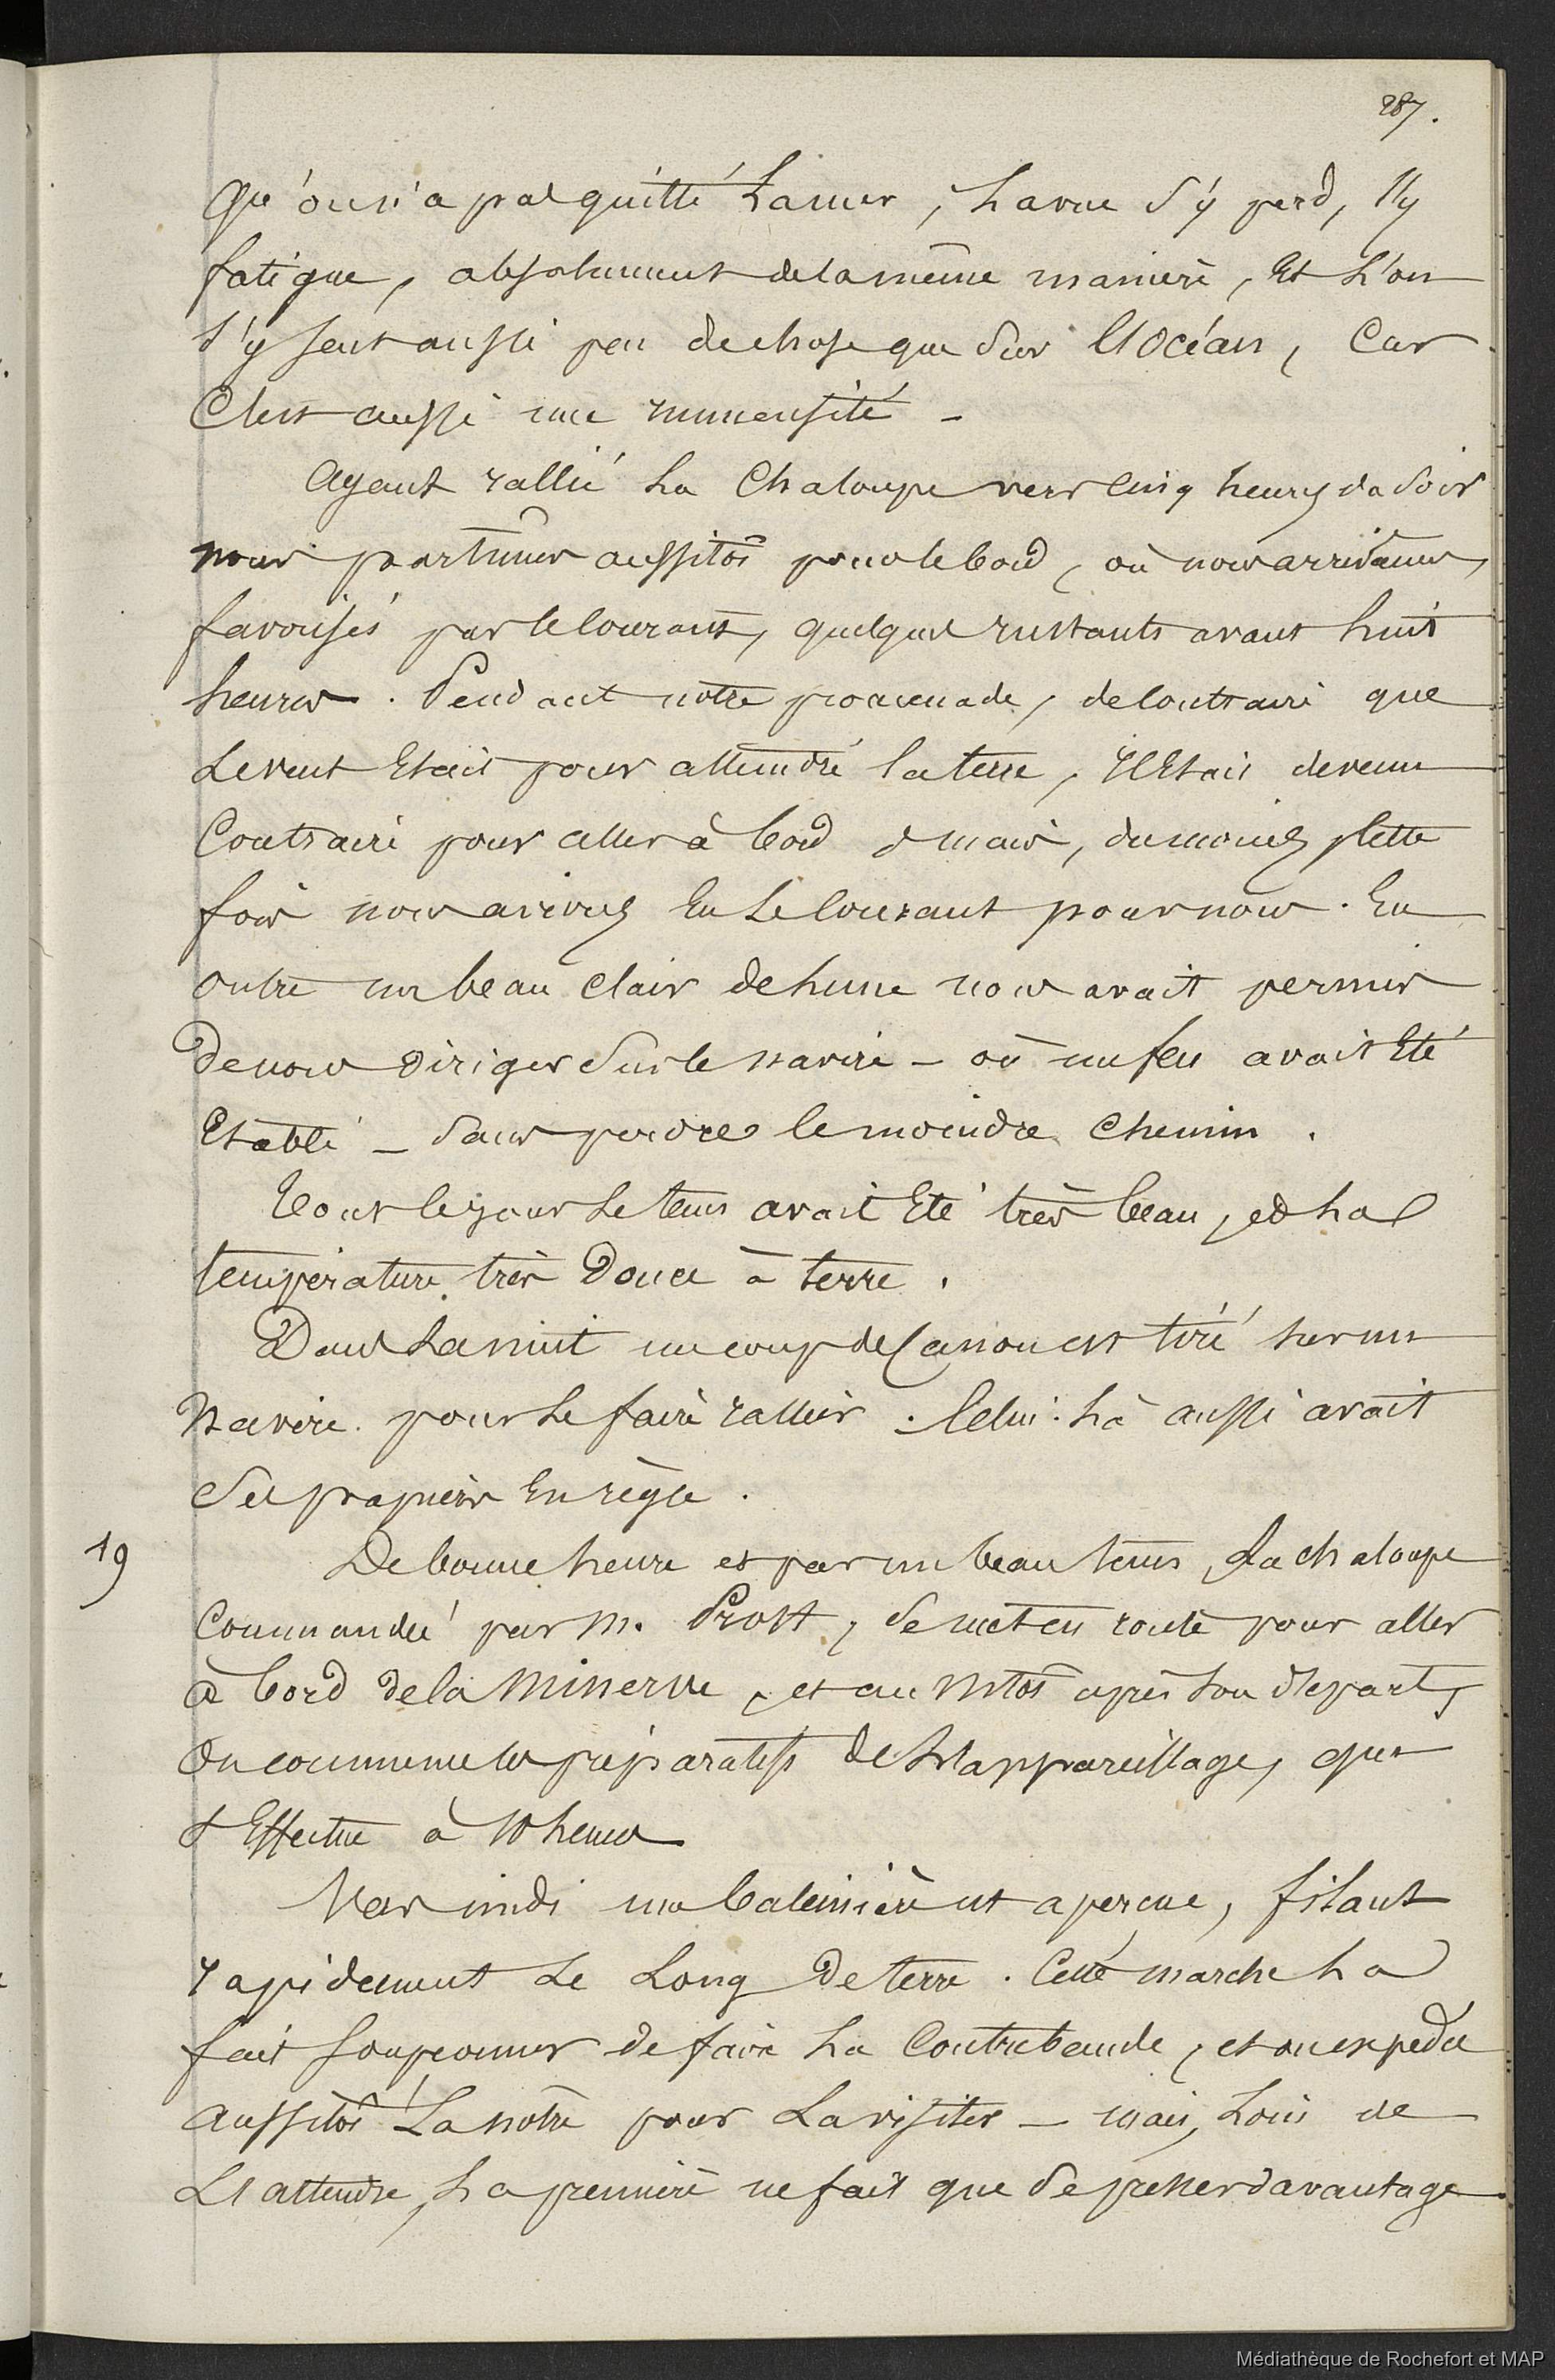 287.
qu'on n'a pas quitté la mer, la vue s'y perd, s'y
fatigue, absolument de la même manière, et l'on
s'y sent aussi peu de chose que sur l'Océan, car
c'est aussi une immensité _
Ayant rallié la chaloupe vers cinq heures du soir
nous partîmes aussitôt pour le bord, où nous arrivâmes,
favorisés par le courant, quelques instants avant huit
heures. Pendant notre promenade, de contraire que
le vent était pour atteindre la terre, il était devenu
contraire pour aller à bord; mais, du moins, cette
fois nous avions eu le courant pour nous. En
outre un beau clair de lune nous avait permis
de nous diriger sur le navire _ où un feu avait été
établi _ sans perdre le moindre chemin.
Tout le jour le tems avait été très beau, et la
température très douce à terre.
Dans la nuit un coup de canon est tiré sur un
navire pour le faire rallier. Celui-là aussi avait
ses papiers en règle.
19
De bonne heure et par un beau tems, la chaloupe
commandée par M. Prost, se met en route pour aller
à bord de la Minerve, et aussitôt après son départ,
on commence les préparatifs de l'appareillage, qui
s'effectue à 10 heures
Vers midi une baleinière est aperçue, filant
rapidement le long de terre. Cette marche la
fait soupçonner de faire la contrebande, et on expédie
aussitôt la nôtre pour la visiter _ mais, loin de
l'attendre, la première ne fait que se presser davantage.
Médiathèque de Rochefort et MAP